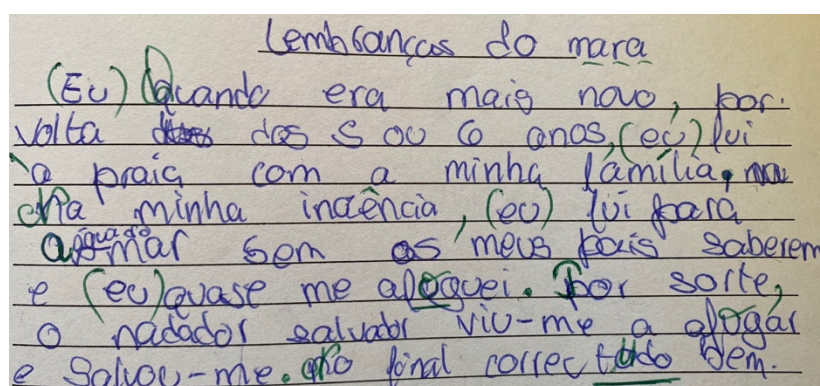 Lembranças do mara
(Eu) Quando era mais novo, por
volta dos 5 ou 6 anos, (eu) fui
à praia com a minha família,
Na minha inocência, (eu) fui para
água do mar sem os meus pais saberem
e (eu) quase me afoguei. Por sorte,
o nadador salvador viu-me a afogar
e salvou-me. No final correu tudo bem.